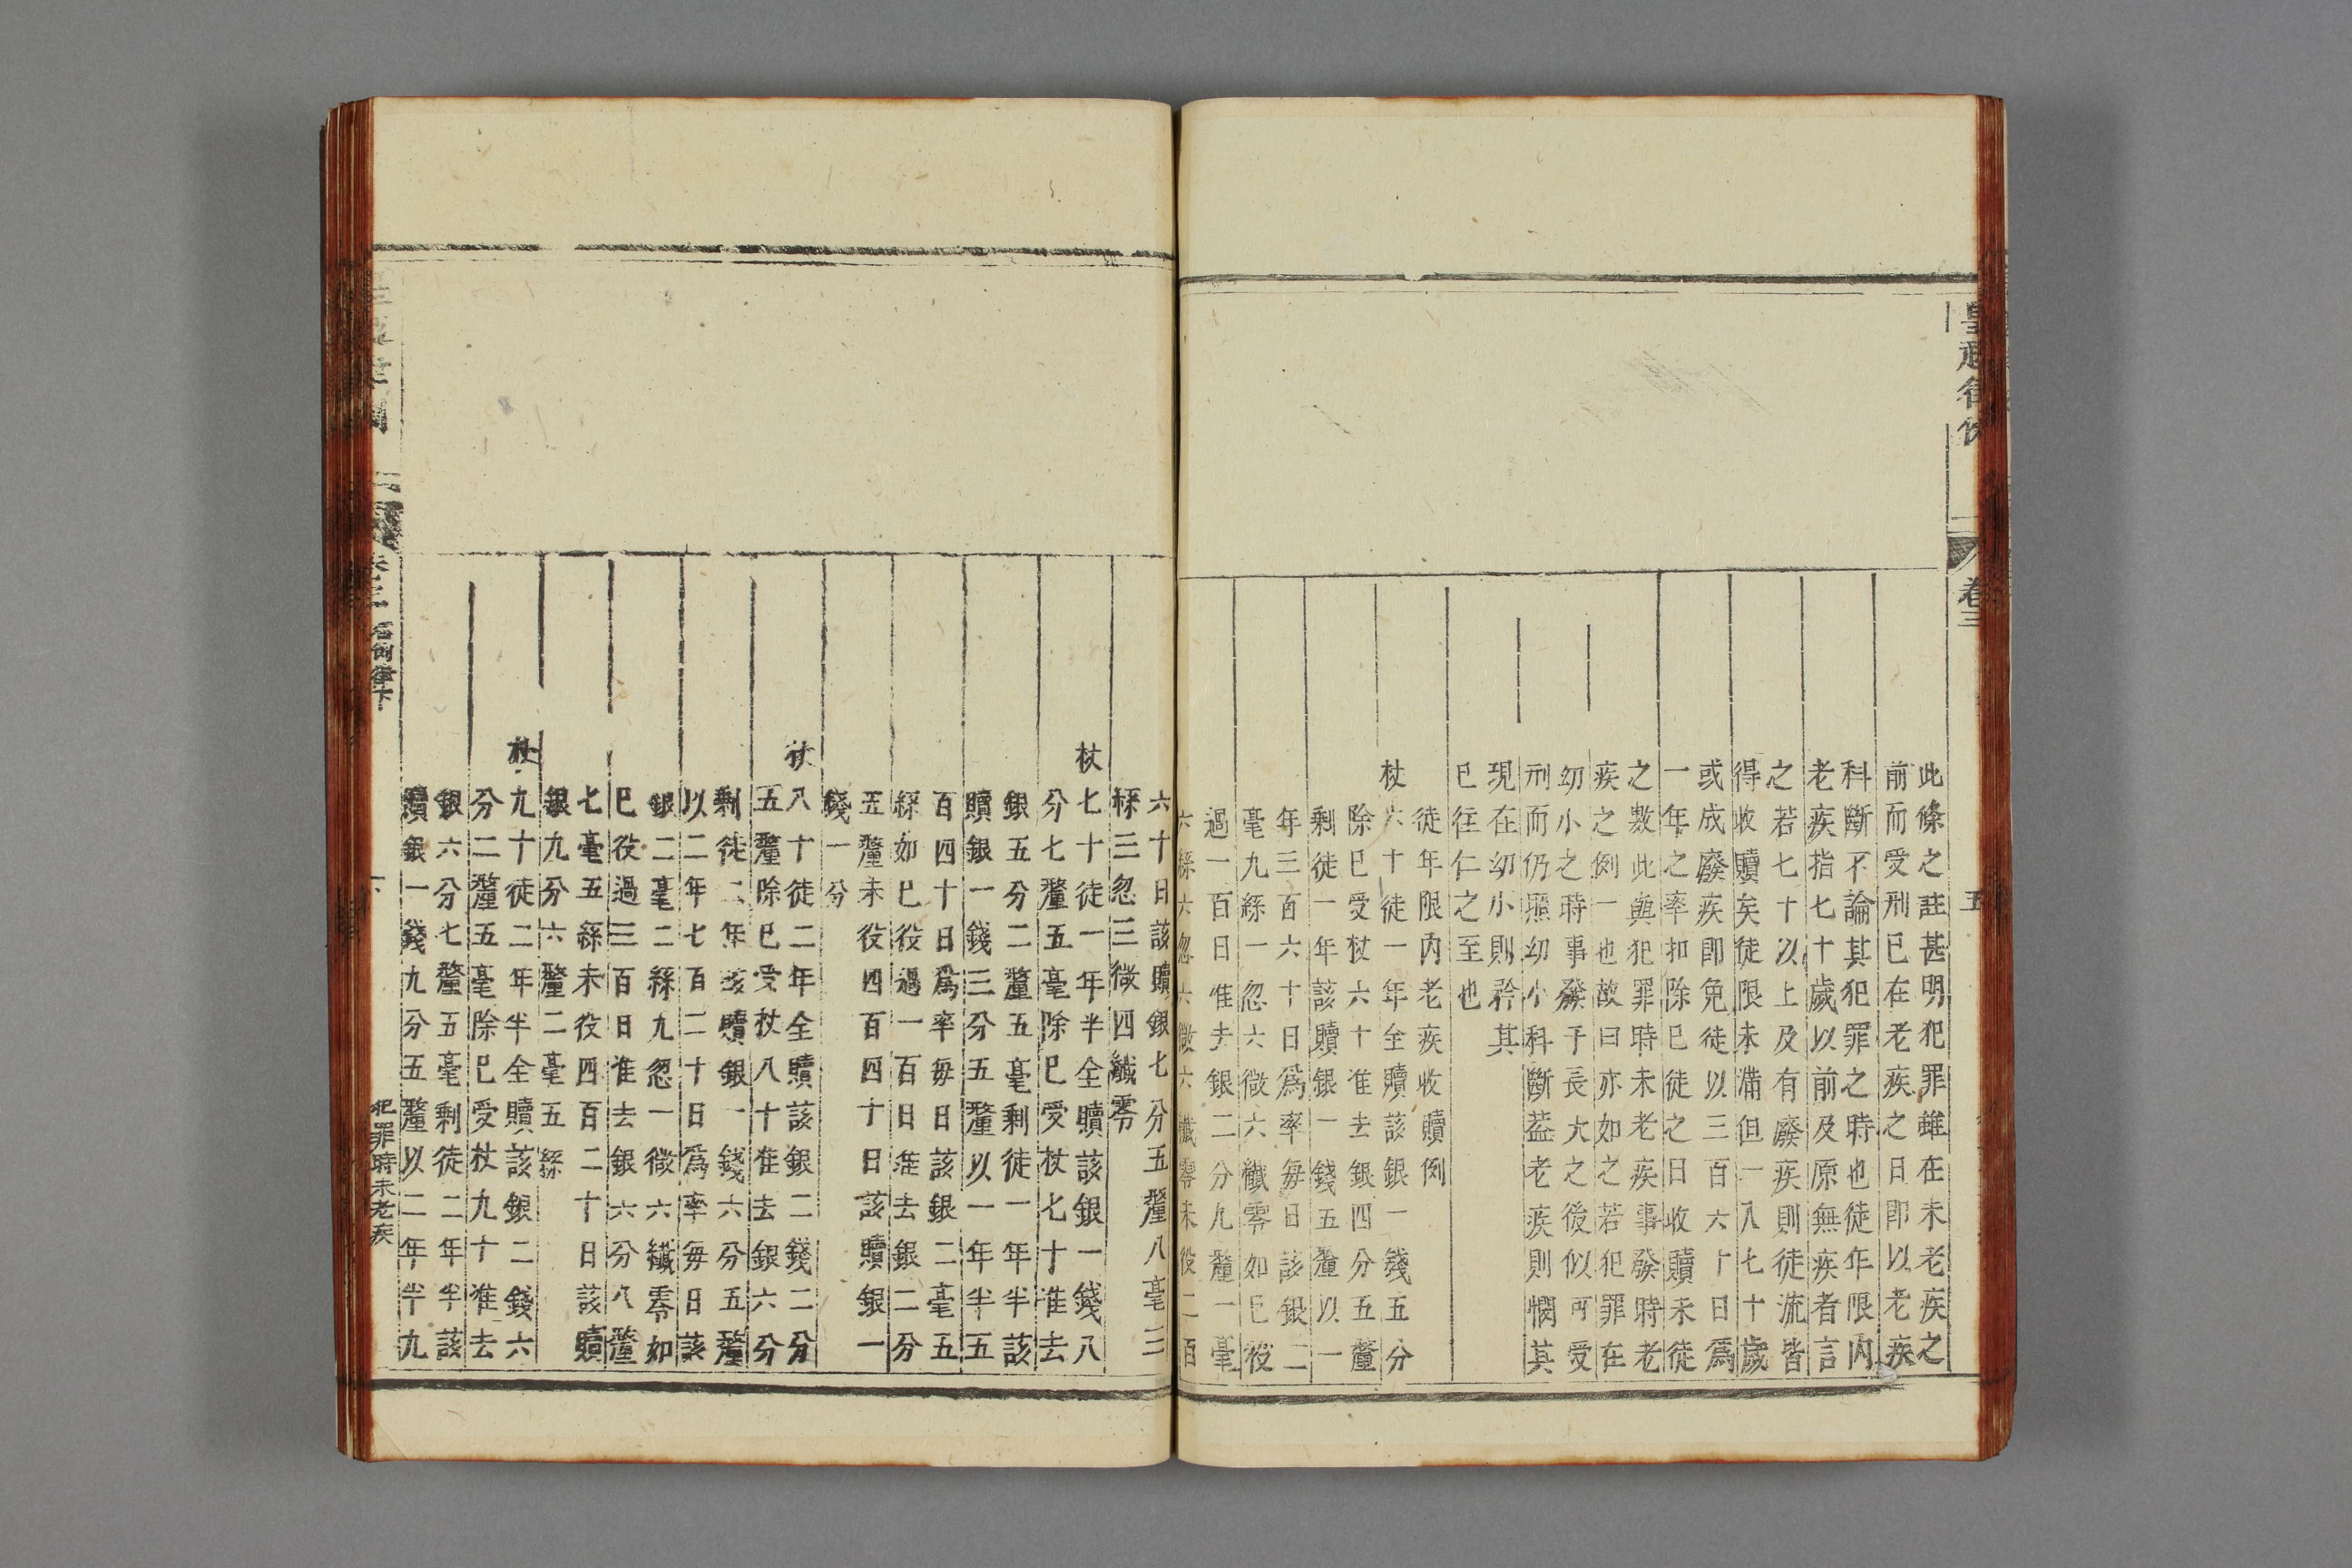 卷三
五
此條之註甚明犯罪雖在未老疾之
前而受刑已在老疾之日即以老疾
科斷不論其犯罪之時也徒年限內
老疾指七十歲以前及原無疾者言
之若七十以上及有廢疾則徒流皆
得收贖矣徒限未滿但一入七十歲
或成廢疾即免徒以三百六十日爲
一年之率扣除已徒之日收贖未徒
之數此與犯罪時未老疾事發時老
疾之例一也故曰亦如之若犯罪在
幼小之時事發于長大之後似可受
刑而仍照幼小科斷葢老疾則憫其
現在幼小則矜其
已往仁之至也
徒年限內老疾收贖例
杖六十徒一年全贖該銀一錢五分
除已受杖六十准去銀四分五釐
剩徒一年該贖銀一錢五釐以一
年三百六十日爲率每日該銀二
毫九絲一忽六微六纖零如已役
過一百日准去銀二分九釐一毫
六絲六忽六微六纖零未役二百
六十日該贖銀七分五釐八毫三
絲三忽三微四纖零
杖七十徒一年半全贖該銀一錢八
分七釐五毫除已受杖七十准去
銀五分二釐五毫剩徒一年半該
贖銀一錢三分五釐以一年半五
百四十日爲率每日該銀二毫五
絲如已役過一百日准去銀二分
五釐未役四百四十日該贖銀一
錢一分
杖八十徒二年全贖該銀二錢二分
五釐除已受杖八十准去銀六分
剩徒二年該贖銀一錢六分五釐
以二年七百二十日爲率每日該
銀二毫二絲九忽一微六纖零如
已役過三百日准去銀六分八釐
七毫五絲未役四百二十日該贖
銀九分六釐二毫五絲
杖九十徒二年半全贖該銀二錢六
分二釐五毫除已受杖九十准去
銀六分七釐五毫剩徒二年半該
贖銀一錢九分五釐以二年半九
名例律下
犯罪時未老疾